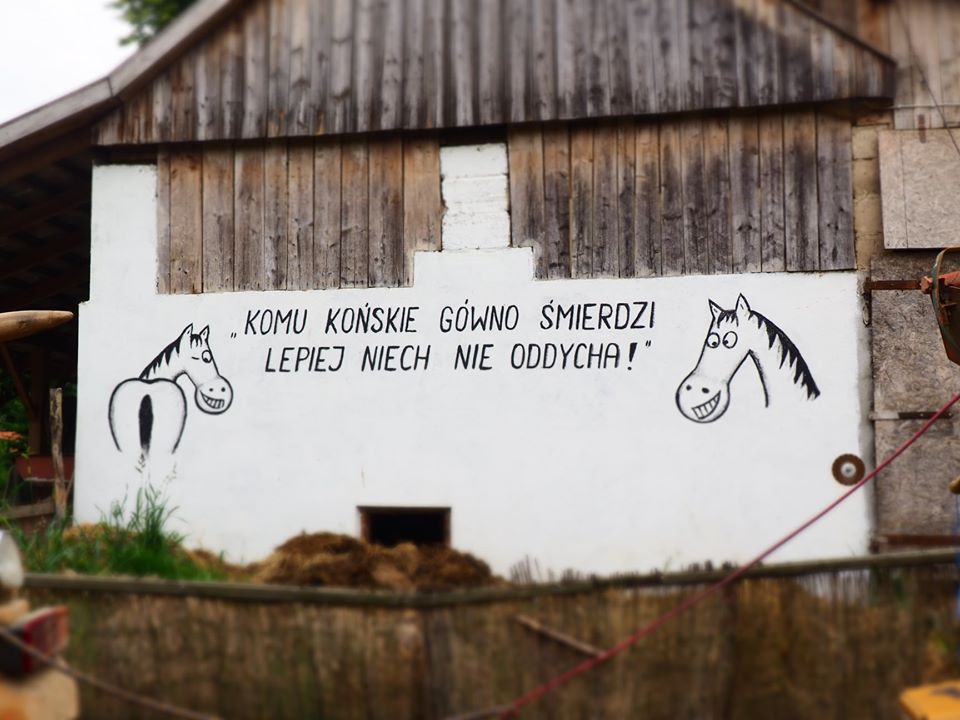 „KOMU KOŃSKIE GÓWNO ŚMIERDZI
LEPIEJ NIECH NIE ODDYCHA!"